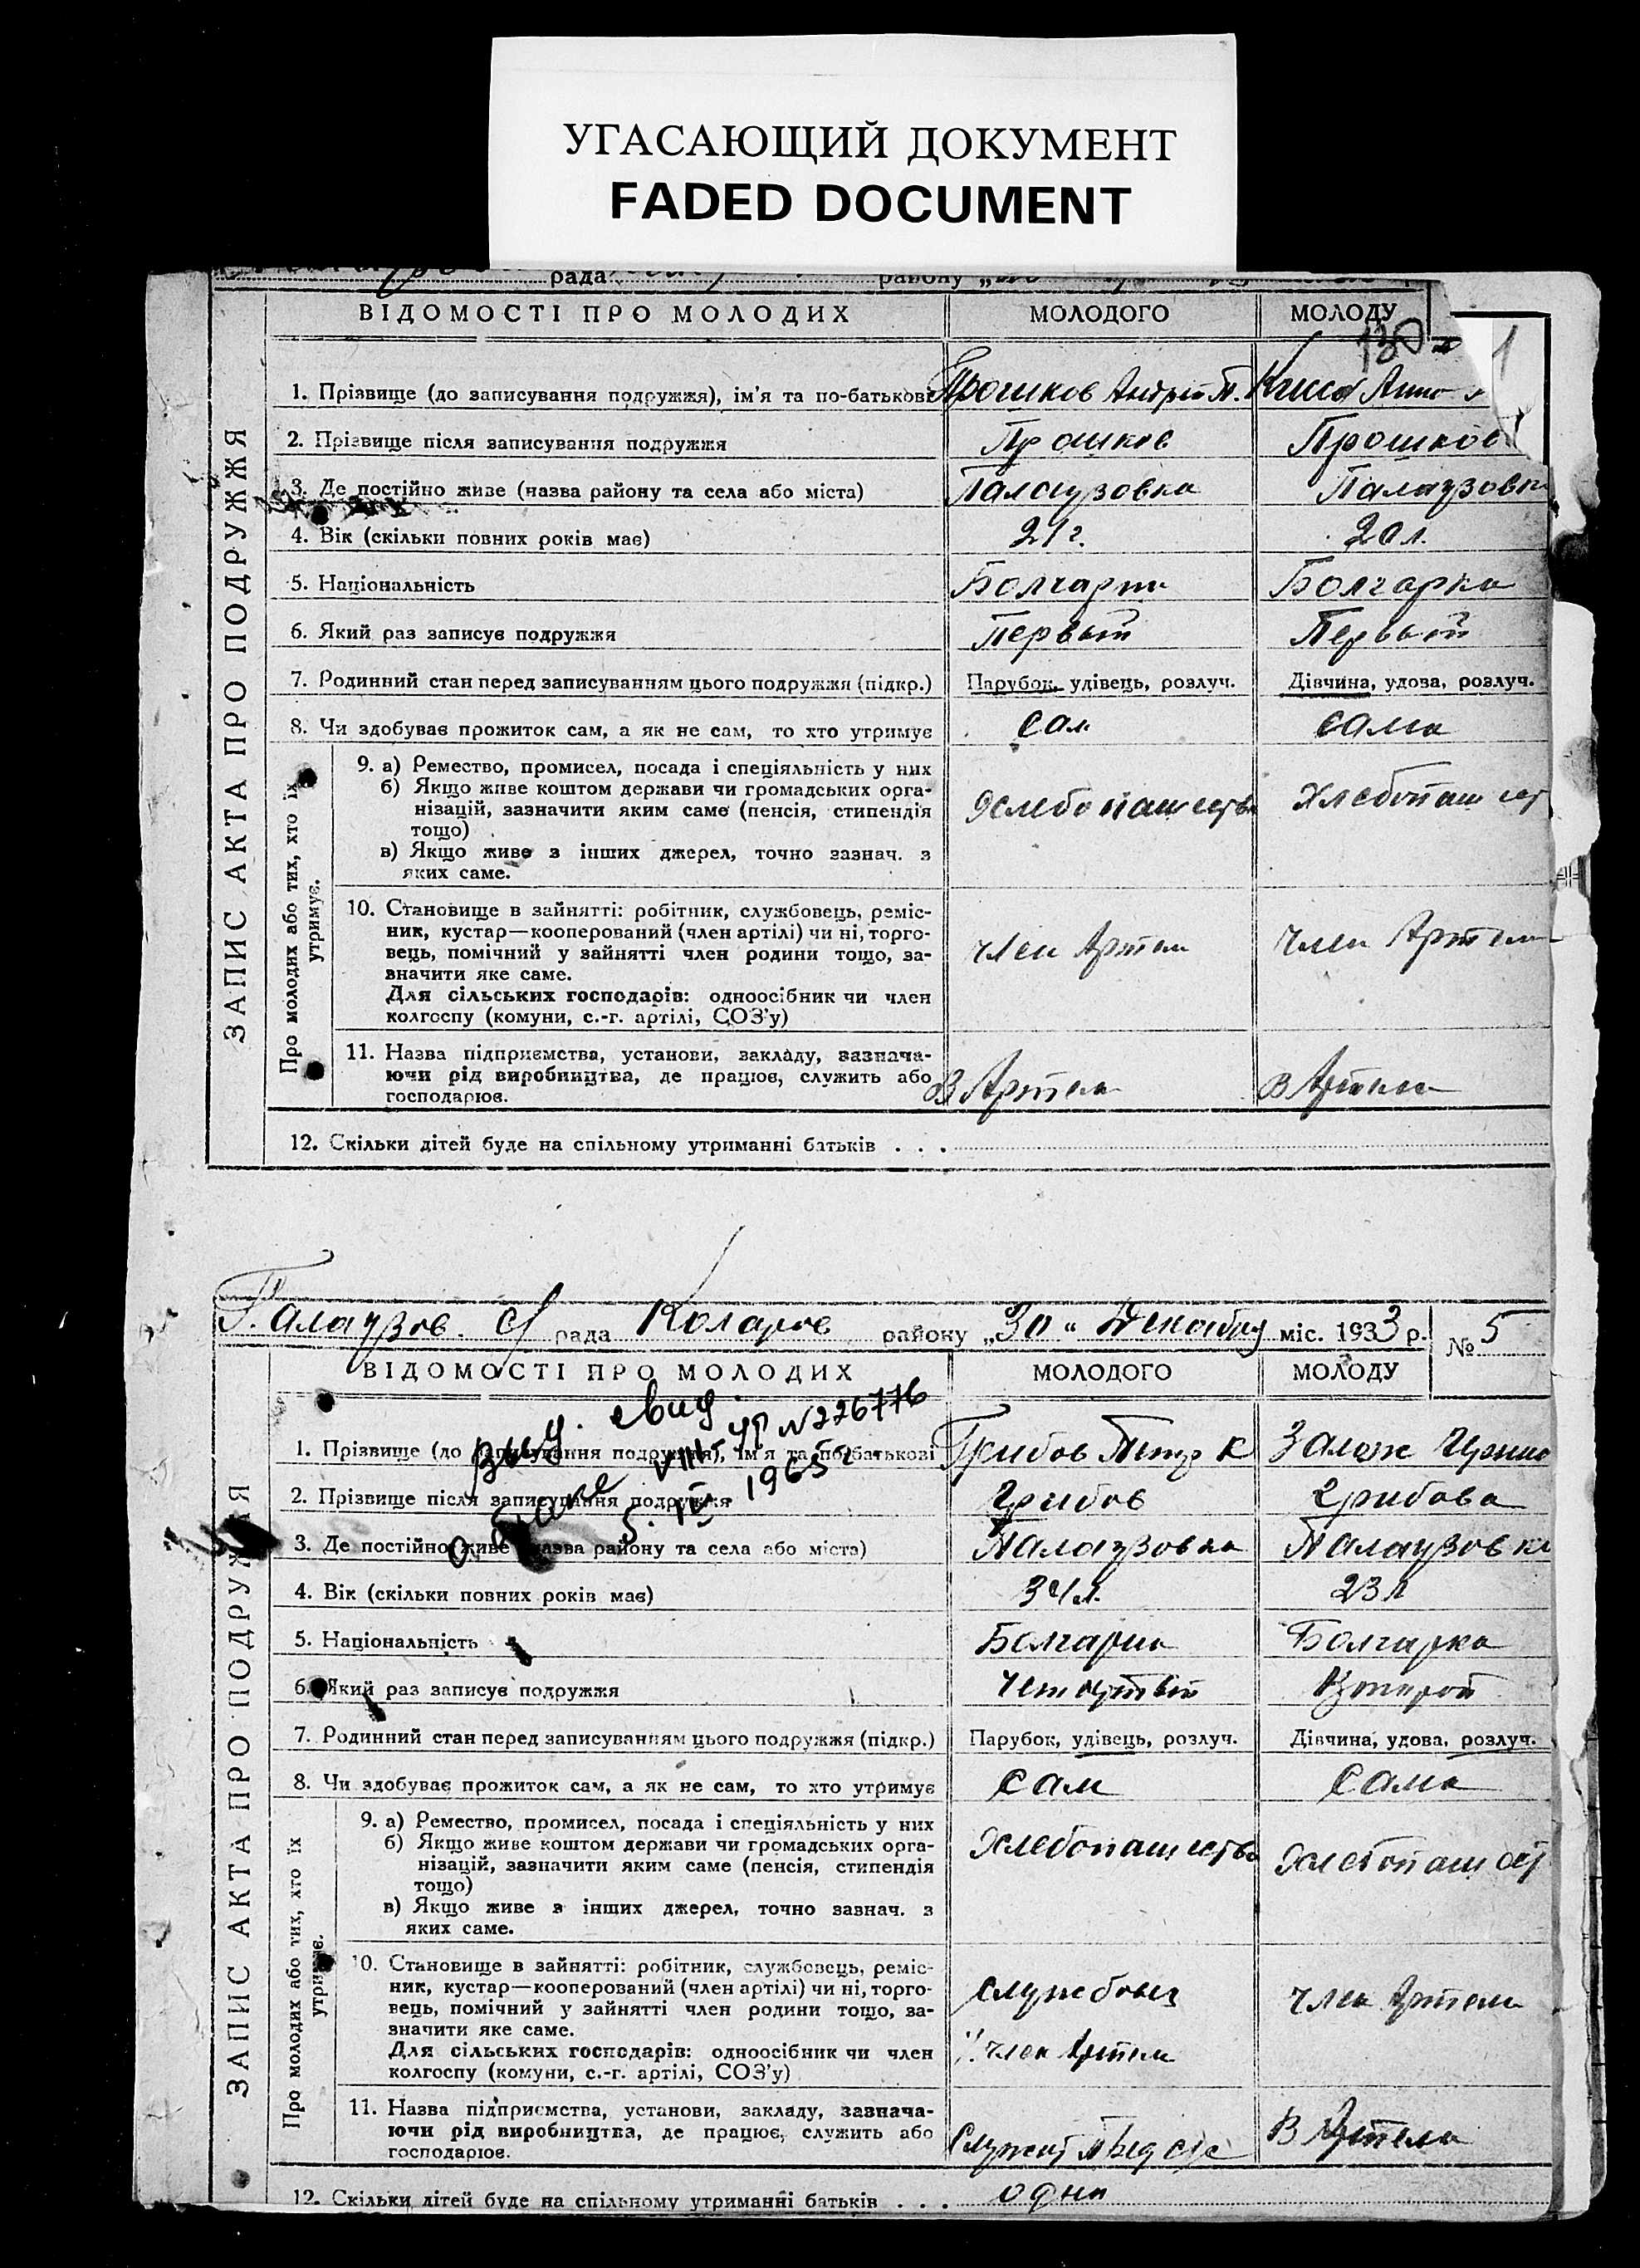 УГАСАЮЩИЙ ДОКУМЕНТ
FADED DOCUMENT
рада району „
ВІДОМОСТІ ПРО МОЛОДИХ МОЛОДОГО МОЛОДУ
130
1. Прізвище (до записування подружжя), ім'я та по-батькові Прошков Андрій П.
2. Прізвище після записування подружжя Прошков Прошков
3. Де постійно живе (назва району та села або міста) Палаузовка Палаузовка
4. Вік (скільки повних років має) 21 г. 20 л.
5. Національність Болгарин Болгарка
6. Який раз записує подружжя Первый Первый
7. Родинний стан перед записуванням цього подружжя (підкр.) Парубок, удівець, розлуч. Дівчина, удова, розлуч.
8. Чи здобуває прожиток сам, а як не сам, то хто утримує Сам Сама
ЗАПИС АКТА ПРО ПОДРУЖЖЯ
Про молодих або тих, хто їх утримує.
9. а) Ремество, промисел, посада і спеціяльність у них
б) Якщо живе коштом держави чи громадських орга-
нізацій, зазначити яким саме (пенсія, стипендія
тощо)
в) Якщо живе з інших джерел, точно зазнач. з
яких саме.
Хлебопашество Хлебопашест
10. Становище в зайнятті: робітник, службовець, реміс-
ник, кустар—кооперований (член артілі) чи ні, торго-
вець, помічний у зайнятті член родини тощо, за-
значити яке саме.
Для сільських господарів: одноосібник чи член
колгоспу (комуни, с.-г. артілі, СОЗ'у)
член Артели член Артели
11. Назва підприємства, установи, закладу, зазнача-
ючи рід виробництва, де працює, служить або
господарює.
В Артели В Артели
12. Скільки дітей буде на спільному утриманні батьків . . .
Палаузов. с/ рада Коларов району „30“ Декабря міс. 1933 р. № 5
ВІДОМОСТІ ПРО МОЛОДИХ МОЛОДОГО МОЛОДУ
выд. свид.
о браке VIII-УР № 226776
5. IV 1965 г.
1. Прізвище (до записування подружжя), ім'я та по-батькові Грибов Петр К
2. Прізвище після записування подружжя Грибов Грибова
3. Де постійно живе (назва району та села або міста) Палаузовка Палаузовка
4. Вік (скільки повних років має) 34 л. 23 л
5. Національність Болгарин Болгарка
6. Який раз записує подружжя Четвертый Второй
7. Родинний стан перед записуванням цього подружжя (підкр.) Парубок, удівець, розлуч. Дівчина, удова, розлуч.
8. Чи здобуває прожиток сам, а як не сам, то хто утримує Сам Сама
ЗАПИС АКТА ПРО ПОДРУЖЖЯ
Про молодих або тих, хто їх утримує.
9. а) Ремество, промисел, посада і спеціяльність у них
б) Якщо живе коштом держави чи громадських орга-
нізацій, зазначити яким саме (пенсія, стипендія
тощо)
в) Якщо живе з інших джерел, точно зазнач. з
яких саме.
Хлебопашество Хлебопашест
10. Становище в зайнятті: робітник, службовець, реміс-
ник, кустар—кооперований (член артілі) чи ні, торго-
вець, помічний у зайнятті член родини тощо, за-
значити яке саме.
Для сільських господарів: одноосібник чи член
колгоспу (комуни, с.-г. артілі, СОЗ'у)
Службовец
член Артели член Артели
11. Назва підприємства, установи, закладу, зазнача-
ючи рід виробництва, де працює, служить або
господарює.
Служит В Артели
12. Скільки дітей буде на спільному утриманні батьків . . . одна